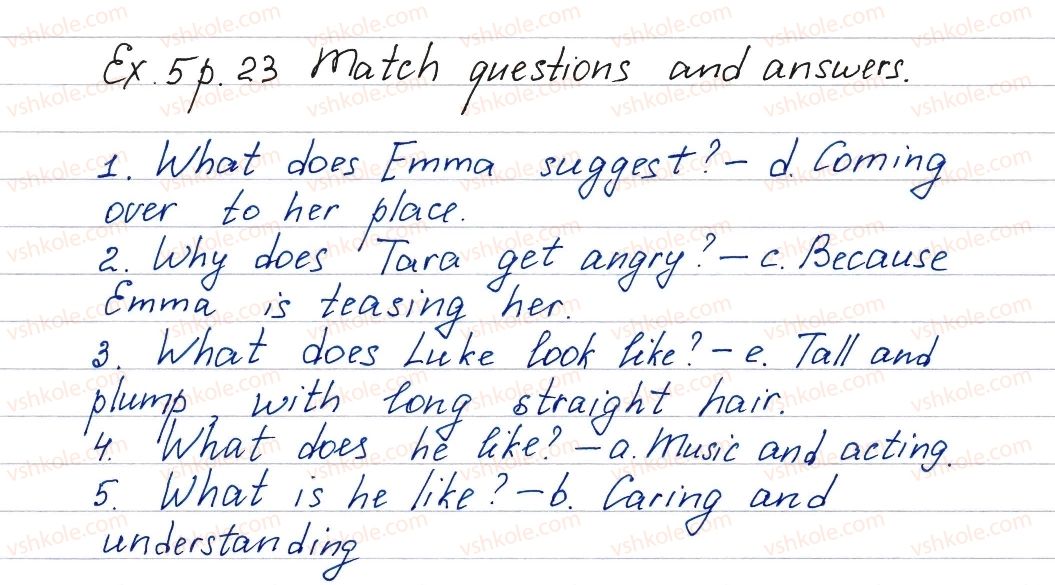 Ex. 5 p. 23 Match questions and answers.
1. What does Emma suggest? – d. Coming
over to her place.
2. Why does Tara get angry? – c. Because
Emma is teasing her.
3. What does Luke look like? – e. Tall and
plump, with long straight hair.
4. What does he like? – a. Music and acting.
5. What is he like? – b. Caring and
understanding